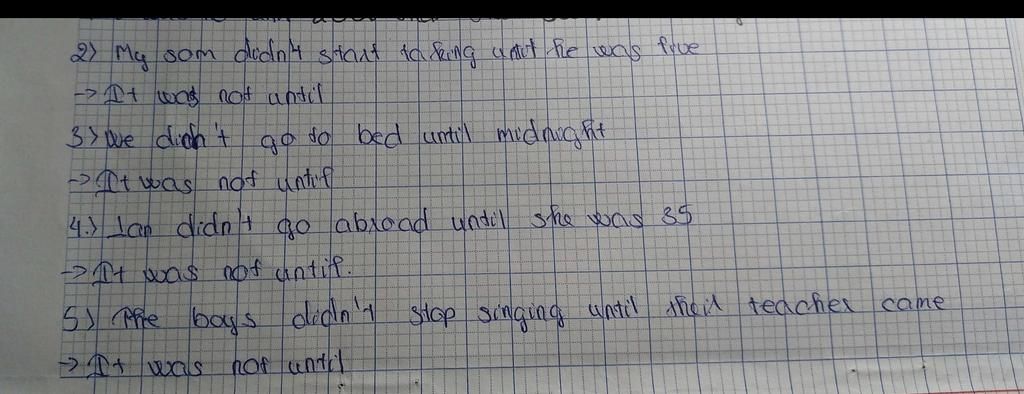 2) My som didn't start talking until he was five
→ It was not until
3) We didn't go to bed until midnight
→ It was not until
4.) Jan didn't go abroad until she was 35
→ It was not until.
5) The boys didn't stop singing until their teacher came
→ It was not until